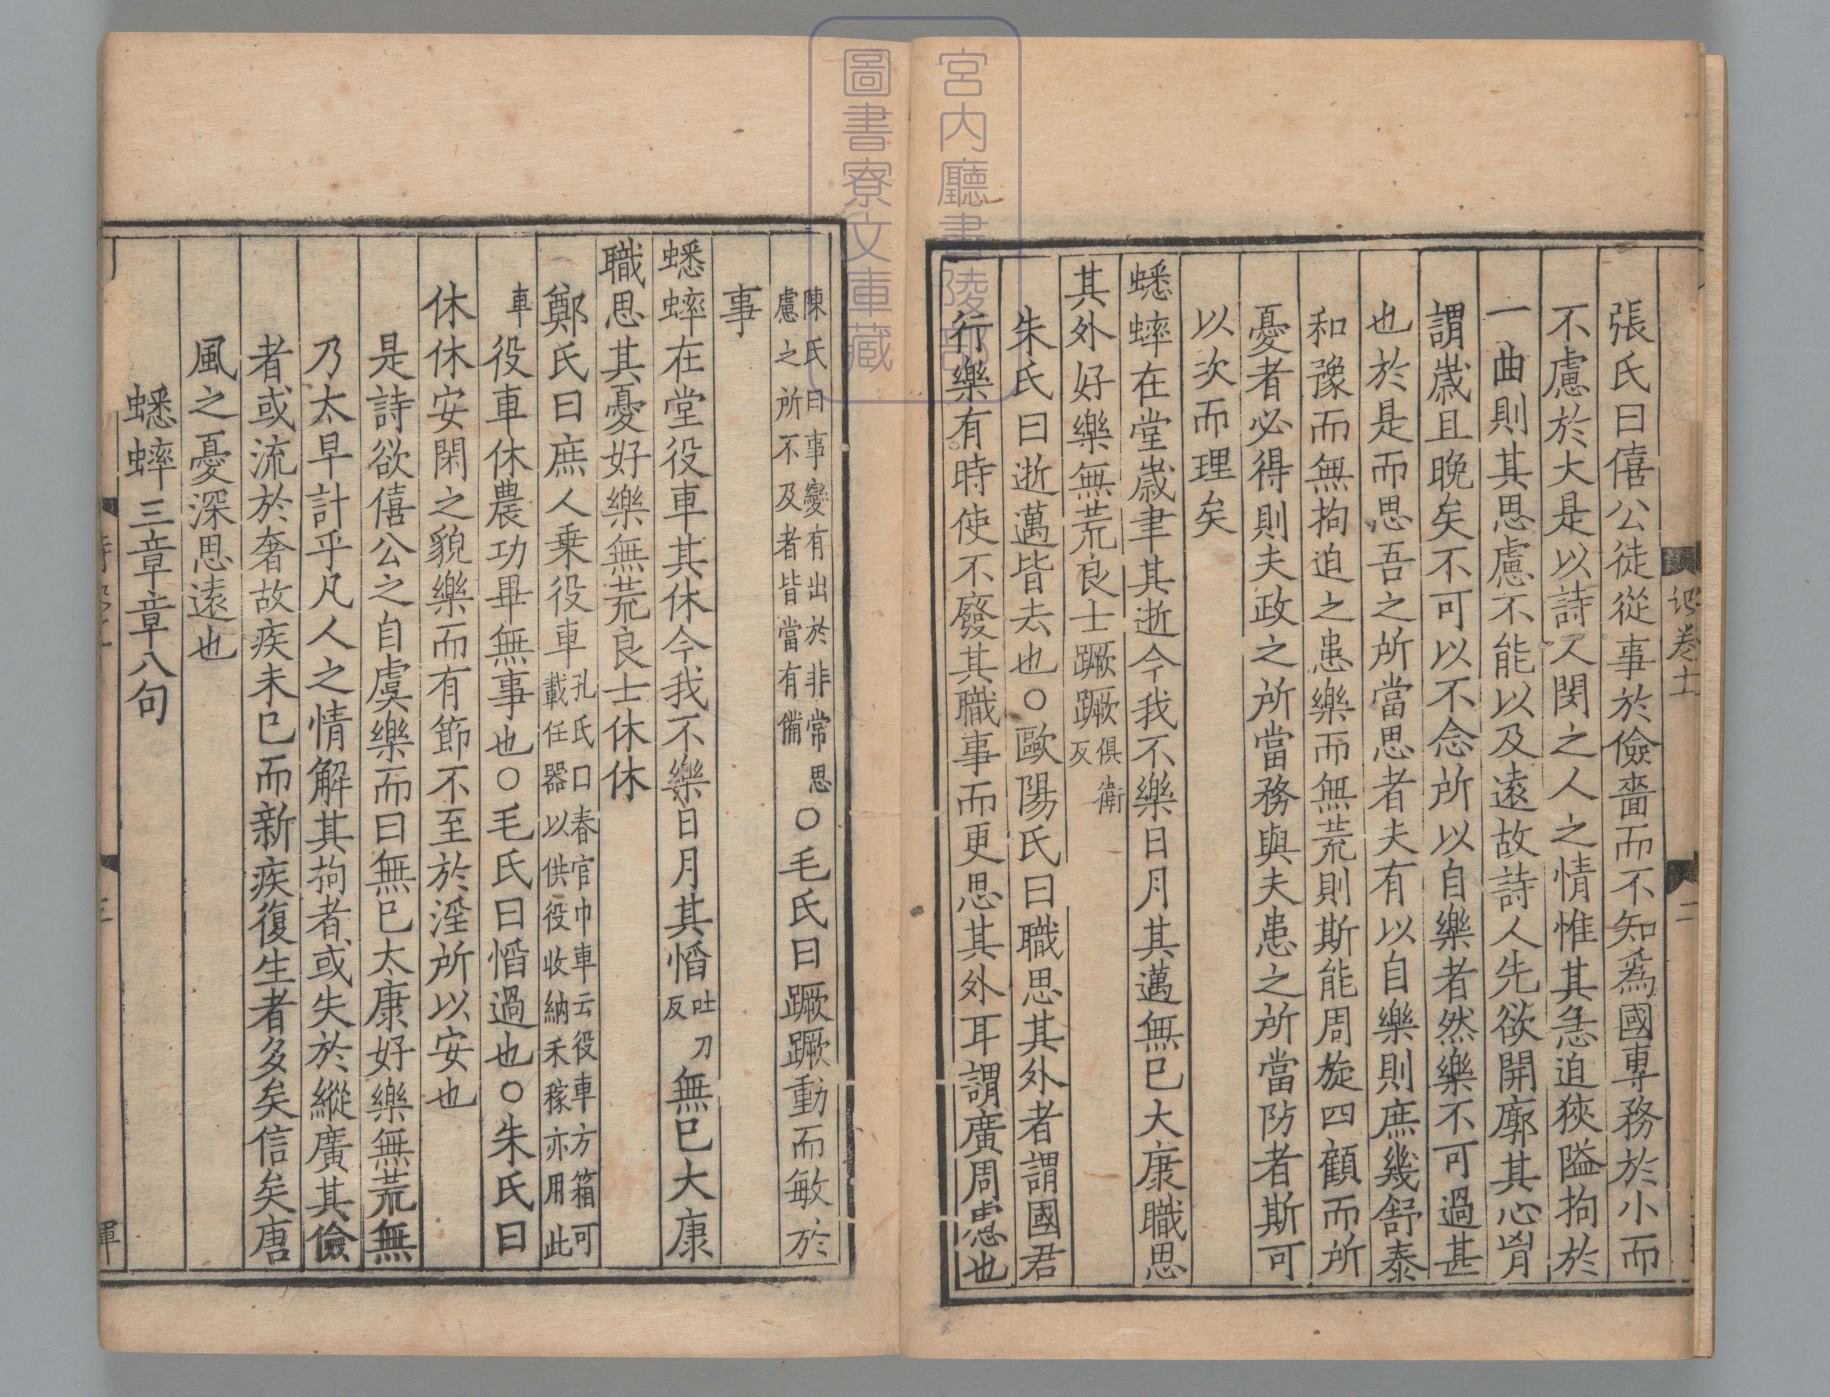 張氏曰僖公徒從事於儉嗇而不知為國專務於小而
不慮於大是以詩人閔之人之情惟其急迫狹隘拘於
一曲則其思慮不能以及遠故詩人先欲開廓其心胷
謂歲且晚矣不可以不念所以自樂者然樂不可過甚
也於是而思吾之所當思者夫有以自樂則庶幾舒泰
和豫而無拘迫之患樂而無荒則斯能周旋四顧而所
憂者必得則夫政之所當務與夫患之所當防者斯可
以次而理矣
蟋蟀在堂歲聿其逝今我不樂日月其邁無已大康職思
其外好樂無荒良士蹶蹶俱衛反
朱氏曰逝邁皆去也○歐陽氏曰職思其外者謂國君
行樂有時使不廢其職事而更思其外耳謂廣周患也
陳氏曰事變有出於非常思慮之所不及者皆當有備○毛氏曰蹶蹶動而敏於
事
蟋蟀在堂役車其休今我不樂日月其慆吐刀反無已大康
職思其憂好樂無荒良士休休
鄭氏曰庶人乗役車孔氏曰春官巾車云役車方箱可載任器以供役收納禾稼亦用此
車役車休農功畢無事也○毛氏曰慆過也○朱氏曰
休休安閑之貌樂而有節不至於淫所以安也
是詩欲僖公之自虞樂而曰無已太康好樂無荒無
乃太早計乎凡人之情解其拘者或失於縱廣其儉
者或流於奢故疾未已而新疾復生者多矣信矣唐
風之憂深思遠也
蟋蟀三章章八句
宮内廳書陵部
圖書寮文庫藏